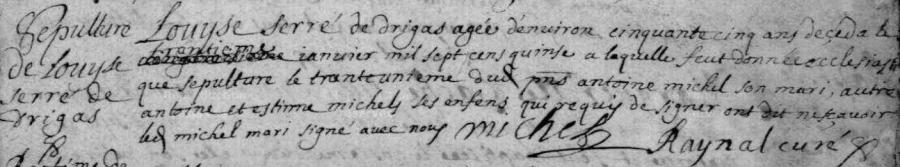 Sepulture
de Louyse
serré de
drigas
Louyse serré de drigas agée denviron cinquante cinq ans deceda le
trentieme
janvier mil sept cens quinse a laquelle feut donnée ecclesiasti
que sepulture le trante unieme dud pns antoine michel son mari, autre
antoine et estime michels ses enfens qui requis de signer ont dit ne sçavoir
led michel mari signé avec nous Michel
Raynal curé